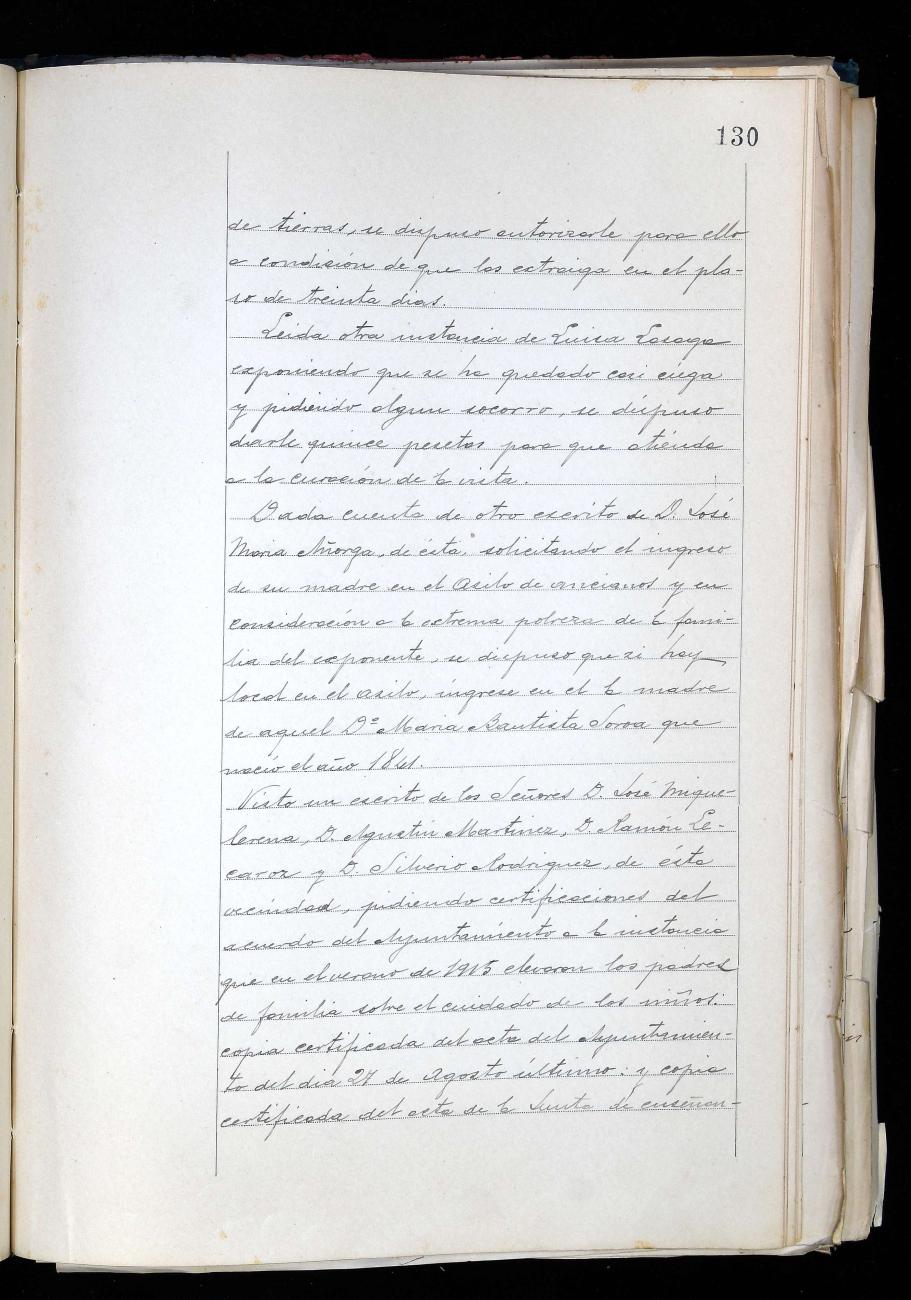 130
de tierras, se dispuso autorizarle para ello
a condisión de que las extraiga en el pla-
so de treinta dias.
Leida otra instancia de Luisa Lasaga
exponiendo que se ha quedado casi ciega
y pidiendo algun socorro, se dispuso
darle quince pesetas para que atienda
a la curación de la vista.
Dada cuenta de otro escrito de D. José
Maria Añorga, de ésta, solicitando el ingreso
de su madre en el Asilo de ancianos y en
consideración a la extrema pobreza de la fami-
lia del exponente, se dispuso que si hay
local en el asilo, ingrese en el la madre
de aquel Dª Maria Bautista Soroa que
nació el año 1841.
Visto un escrito de los Señores D. José Migue-
lerena, D. Agustin Martinez, D. Ramón Le-
caroz y D. Silverio Rodriguez, de ésta
vecindad, pidiendo certificaciones del
acuerdo del Ayuntamiento a la instancia
que en el verano de 1915 elevaron los padres
de familia sobre el cuidado de los niños:
copia certificada del acta del Ayuntamien-
to del dia 27 de Agosto último: y copia
certificada del acta de la Junta de enseñan-